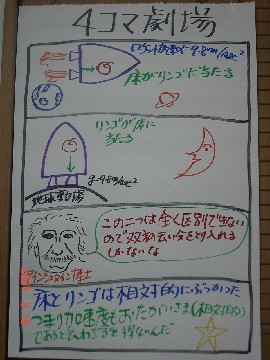 4コマ劇場
ロケット加速中 9.8m/sec²
床がリンゴに当たる
リンゴが床に
当たる
g=9.8m/sec²
地球重力場
この二つは全く区別できない
ので双方の云い分をとり入れる
しかないな
アインシュタイン博士
床とリンゴは相対的にぶつかった
つまり加速度もおたがいさま(相対的)
であると云わざるを得ないんだ